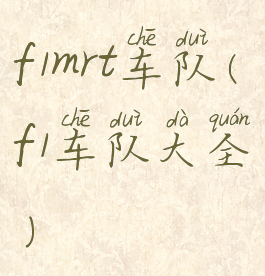 f1mrt车队(
chē duì
f1车队大全
chē duì dà quán
)